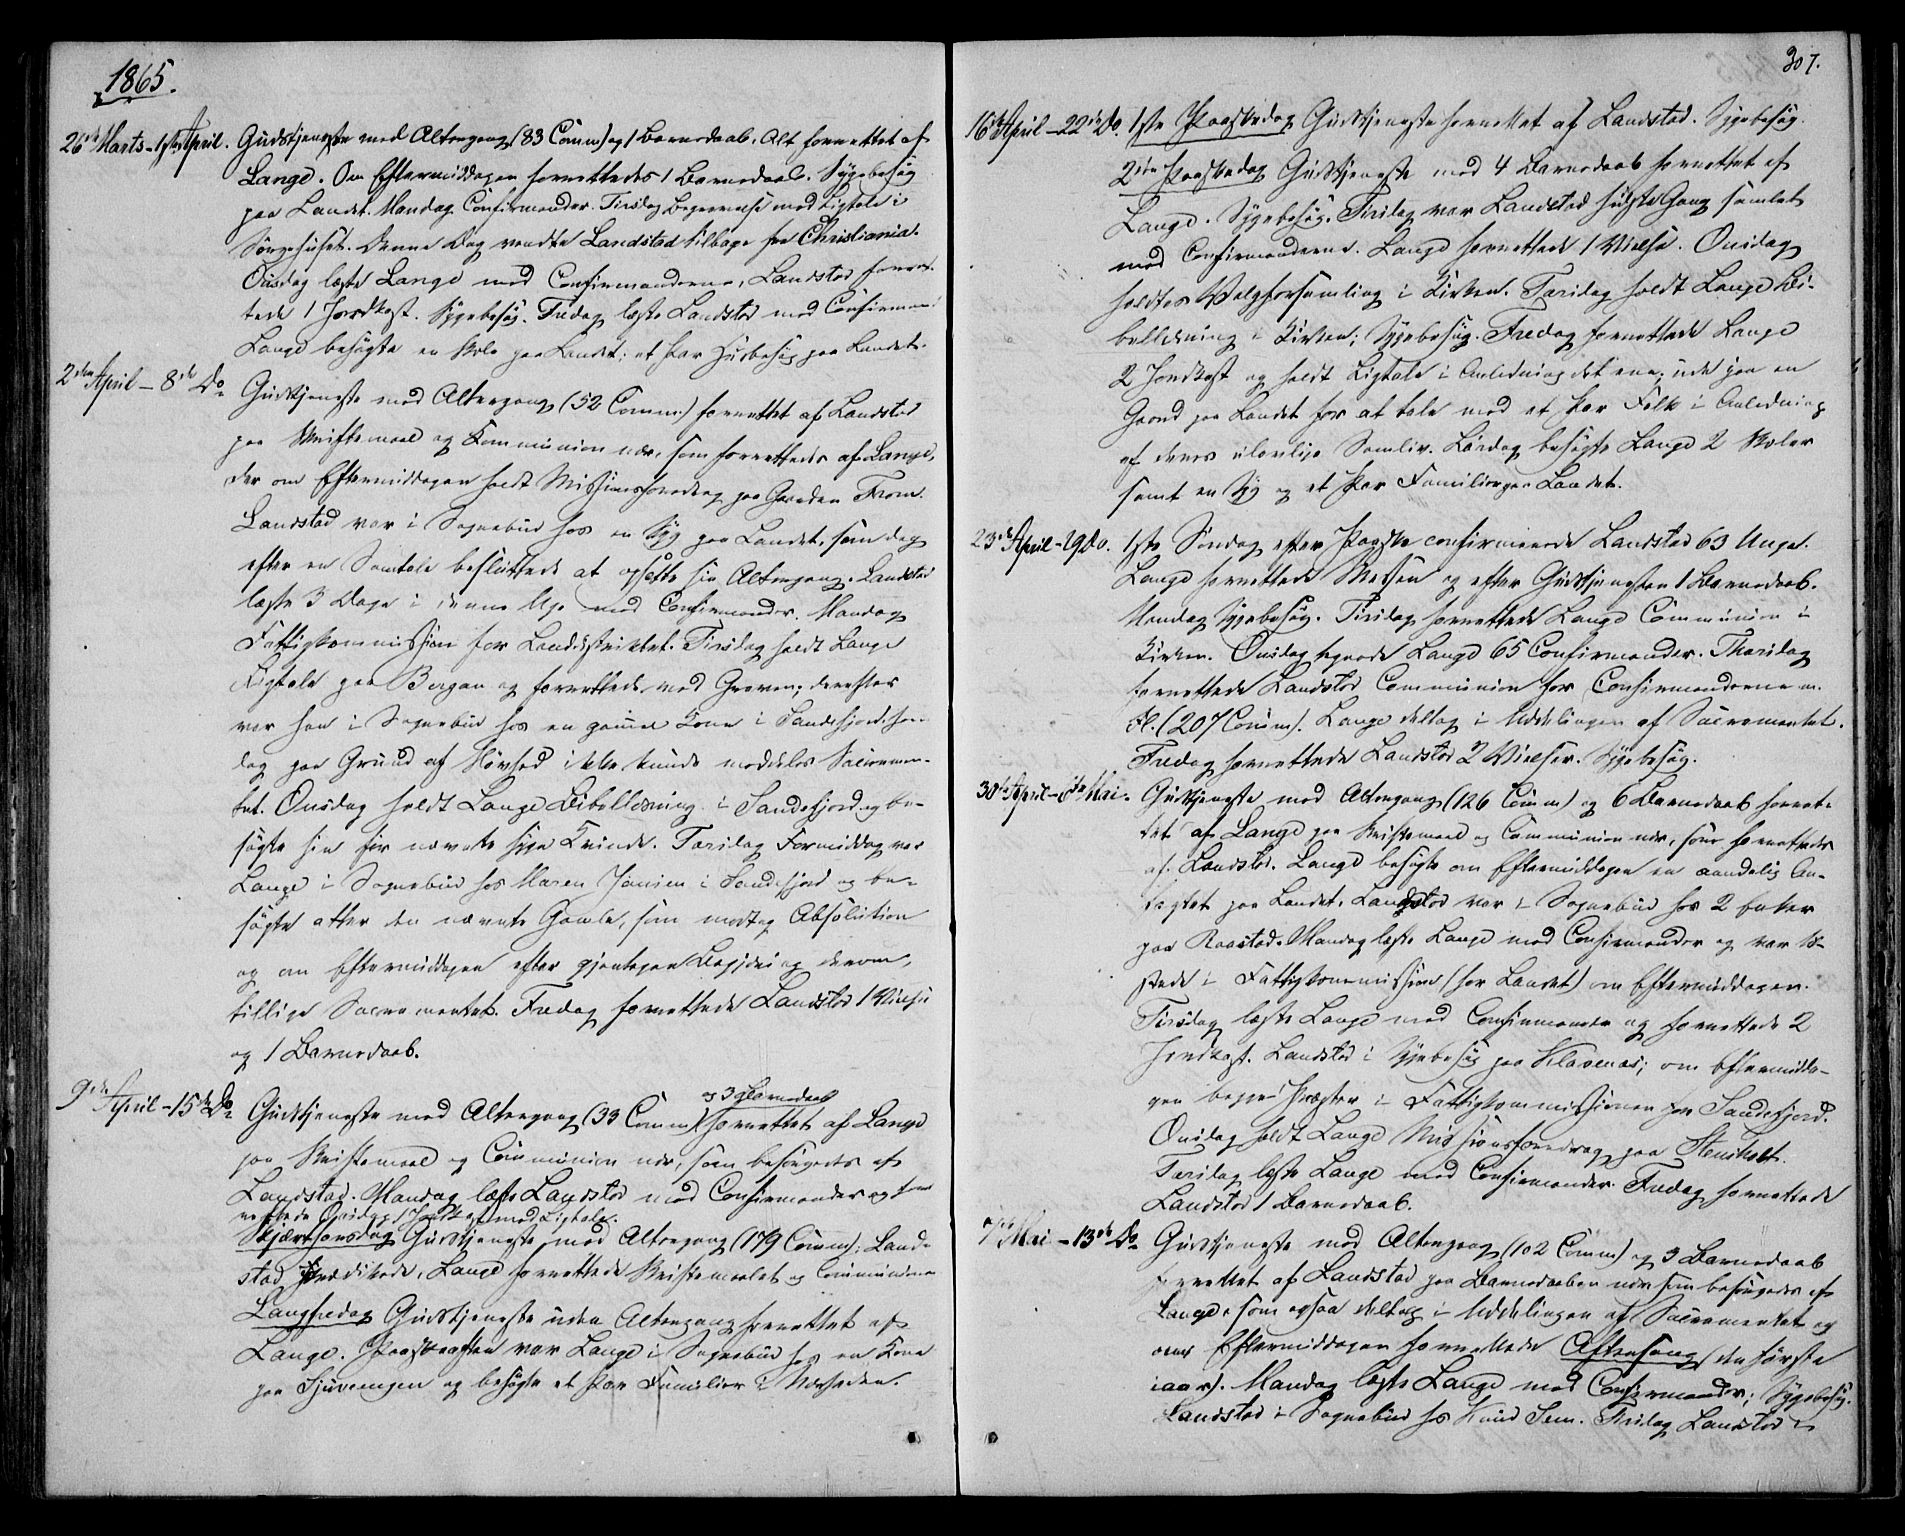 1865.
26de Marts - 1ste April. Gudstjeneste med Altergang (83 Comm) og 1 Barnedaab, Alt forrettet af
Lange. Om Eftermiddagen forrettedes 1 Barnedaab. Sygebesøg
paa Landet. Mandag Confirmander. Tirsdag Begravelse med Ligtale i
Sørgehuset. Denne Dag vendte Landstad tilbage fra Christiania.
Onsdag læste Lange med Confirmanderne, Landstad forret-
tede 1 Jordkast. Sygebesøg. Fredag læste Landstad med Confirmand
Lange besøgte en Skole paa Landet; et Par Husbesøg paa Landet.
2den April - 8de Do Gudstjeneste med Altergang (52 Comm) forrettet af Landstad
paa Skriftemaal og Kommunion nær, som forrettedes af Lange,
der om Eftermiddagen holdt Missionsforedrag paa Gaarden From.
Landstad var i Sognebud hos en Syg paa Landet, som dog
efter en Samtale besluttede at opsætte sin Altergang. Landstad
læste 3 Dage i denne Uge med Confirmander. Mandag
Fattigkommission for Landdistriktet. Tirsdag holdt Lange
Ligtale paa Bergan og forrettede ved Graven; derefter
var han i Sognebud hos en gammel Kone i Sandefjord, som
dog paa Grund af Sløvhed ikke kunde meddeles Sacramen-
tet. Onsdag holdt Lange Bibellæsning i Sandefjord og be-
søgte sin før nævnte syge Kvinde. Torsdag Formiddag var
Lange i Sognebud hos Maren Jansen i Sandefjord og be-
søgte atter den nævnte Gamle, som modtog Absolution
og om Eftermiddagen efter gjentagen Begjæring derom,
tillige Sacramentet. Fredag forrettede Landstad 1 Vielse
og 1 Barnedaab.
og 3 Barnedaab
9de April - 15de Do Gudstjeneste med Altergang (33 Comm) forrettet af Lange
paa Skriftemaal og Communion nær, som besørgedes af
Landstad. Mandag læste Landstad med Confirmander og for-
rettede Onsdag 1 Jordkast med Ligtale.
Skjærthorsdag Gudstjeneste med Altergang (179 Comm); Land-
stad prædikede, Lange forrettede Skriftemaalet og Communionen
Langfredag Gudstjeneste uden Altergang forrettet af
Lange. Paaskeaften var Lange i Sognebud hos en Kone
paa Tjuvengen og besøgte et Par Familier i Nærheden.
307.
16de April - 22de Do. 1ste Paaskedag Gudstjeneste forrettet af Landstad. Sygebesøg.
2den Paaskedag Gudstjeneste med 4 Barnedaab forrettet af
Lange. Sygebesøg. Tirsdag var Landstad sidste Gang samlet
med Confirmanderne. Lange forrettede 1 Vielse. Onsdag
holdtes Valgforsamling i Kirken. Torsdag holdt Lange Bi-
bellæsning i Kirken; Sygebesøg. Fredag forrettede Lange
2 Jordkast og holdt Ligtale i Anledning det ene; ude paa en
Gaard paa Landet for at tale med et Par Folk i Anledning
af deres ulovlige Samliv. Lørdag besøgte Lange 2 Skoler
samt en Syg og et Par Familier paa Landet.
23de April - 29 Do. 1ste Søndag efter Paaske confirmerede Landstad 63 Unge.
Lange forrettede Messen og efter Gudstjenesten 1 Barnedaab.
Mandag Sygebesøg. Tirsdag forrettede Lange Communion i
Kirken. Onsdag Lange 65 Confirmander. Thorsdag
forrettede Landstad Communion for Confirmanderne m.
Fl. (207 Comm). Lange deltog i Uddelingen af Sacramentet.
Fredag forrettede Landstad 2 Vielser. Sygebesøg.
30te April - 6te Mai. Gudstjeneste med Altergang (126 Comm) og 6 Barnedaab forret-
tet af Lange paa Skriftemaal og Communion nær, som forrettedes
af Landstad. Lange besøgte om Eftermiddagen en aandelig An-
fægtet paa Landet, Landstad var i Sognebud hos 2
paa Raastad. Mandag læste Lange med Confirmander og var til-
stede i Fattigkommission (for Landet) om Eftermiddagen.
Tirsdag læste Lange med Confirmander og forrettede 2
Jordkast. Landstad i Sygebesøg paa Klavenæs; om Eftermidda-
gen begge Præster i Fattigkommissionen for Sandefjord.
Onsdag holdt Lange Missionsforedrag paa Stensholt.
Torsdag læste Lange med Confirmander. Fredag forrettede
Landstad 1 Barnedaab.
7de Mai - 13de Do Gudstjeneste med Altergang (102 Comm) og 3 Barnedaab
forrettet af Landstad paa Barnedaaben nær som besørgedes af
Lange, som ogsaa deltog i Uddelingen af Sacramentet og
om Eftermiddagen forrettede Aftensang (den første
iaar). Mandag læste Lange med Confirmander; Sygebesøg.
Landstad i Sognebud hos Knud Sem. Tirsdag Landstad i